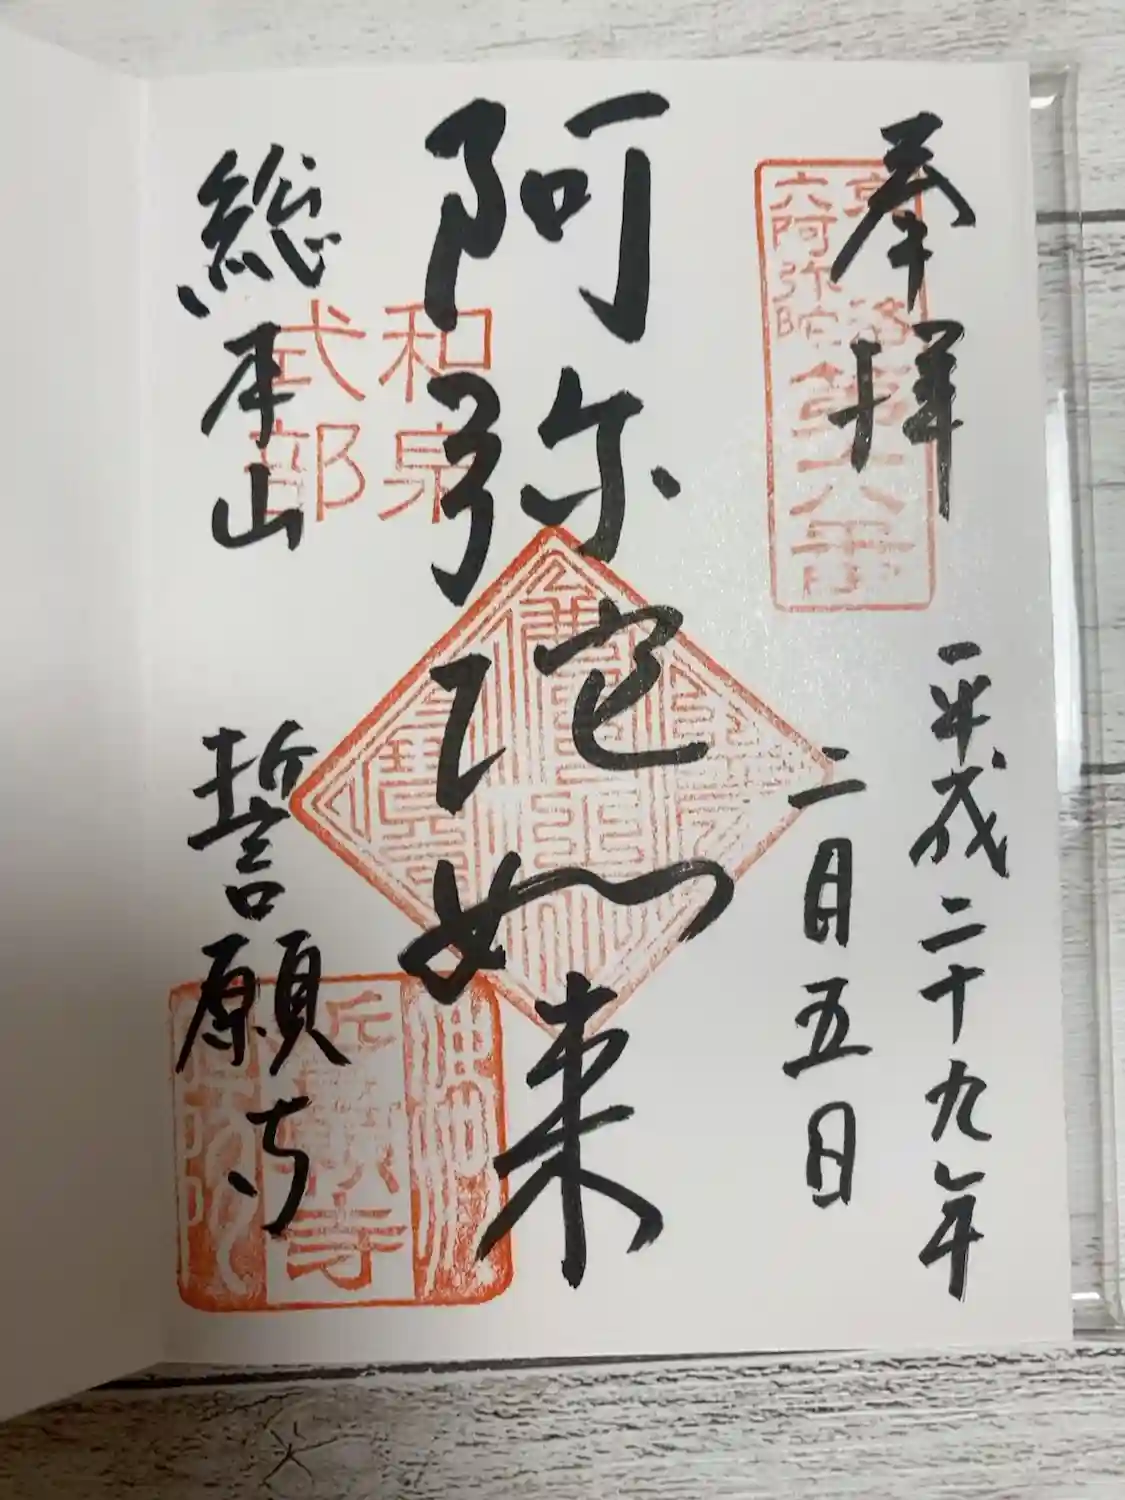 奉拝
平成二十九年
二月五日
阿弥陀如来
総本山
誓願寺
京洛
六阿弥陀
第六番
和泉
式部